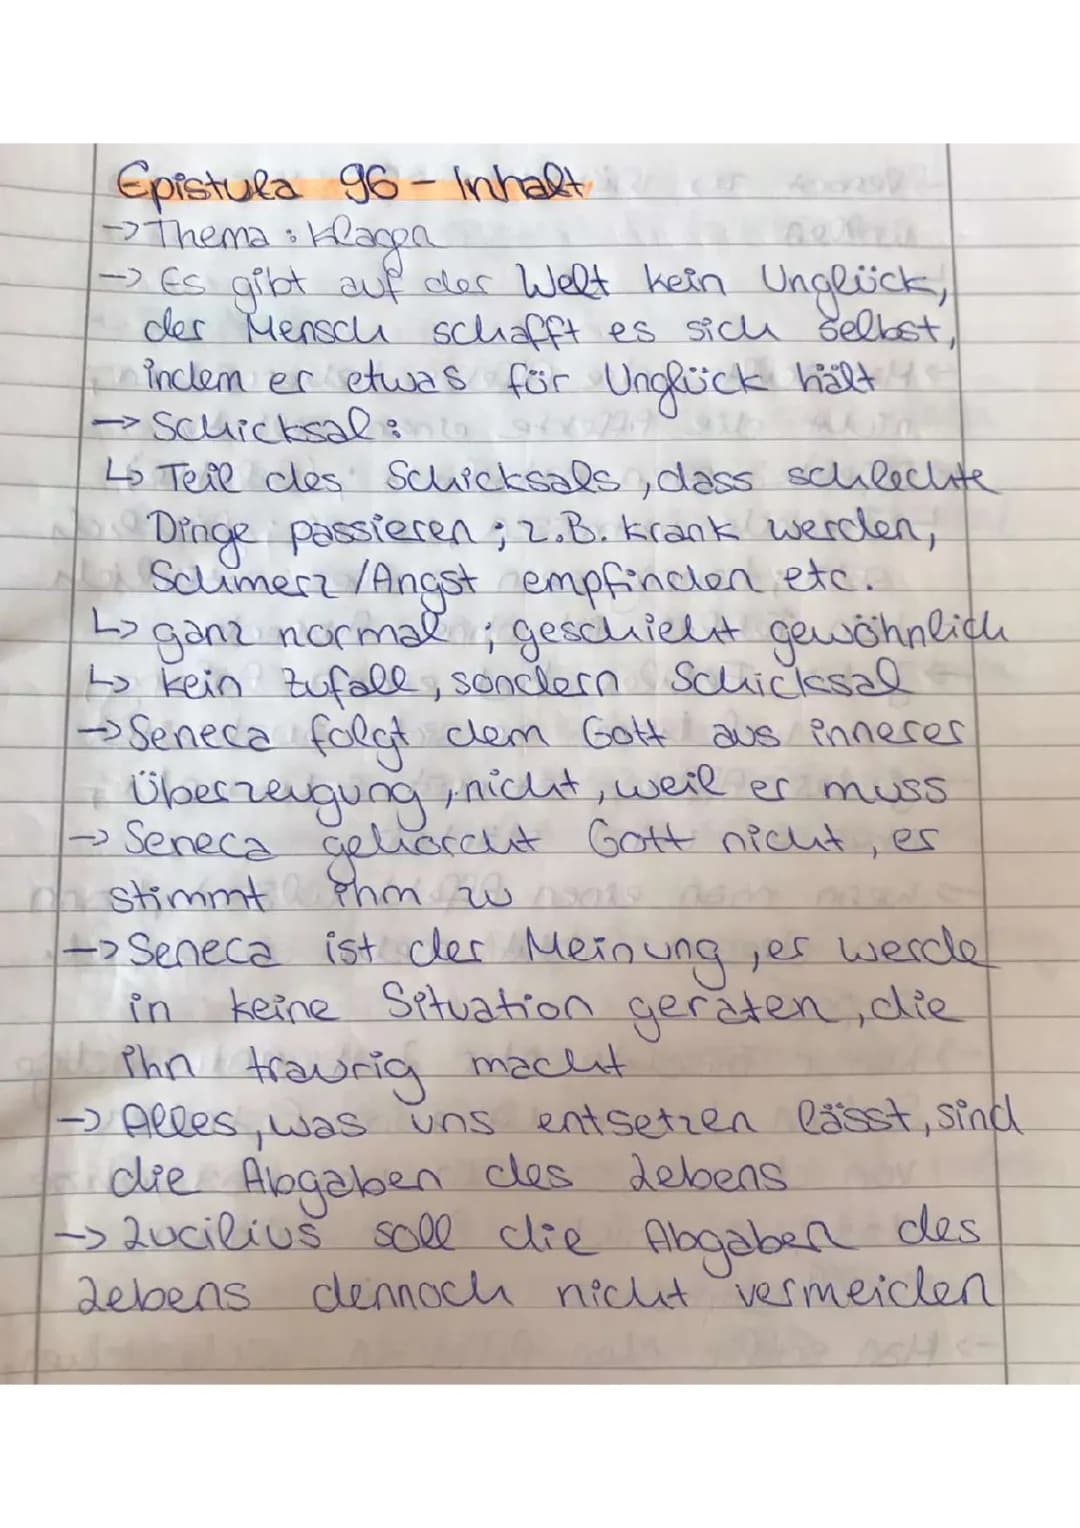 Epistula 96 - Inhalt
→ Thema: Klagen
→ Es gibt auf der Welt kein Unglück,
der Mensch schafft es sich selbst,
indem er etwas für Unglück hält
→ Schicksal:
↳ Teil des Schicksals, dass schlechte
Dinge passieren; z.B. krank werden,
Schmerz/Angst empfinden etc.
↳ ganz normal; geschieht gewöhnlich
↳ kein Zufall, sondern Schicksal
→ Seneca folgt dem Gott aus innerer
Überzeugung, nicht, weil er muss
→ Seneca gehorcht Gott nicht, er
stimmt ihm zu
→ Seneca ist der Meinung, er werde
in keine Situation geraten, die
ihn traurig macht
→ Alles, was uns entsetzen lässt, sind
die Abgaben des Lebens
→ Lucilius soll die Abgaben des
Lebens dennoch nicht vermeiden